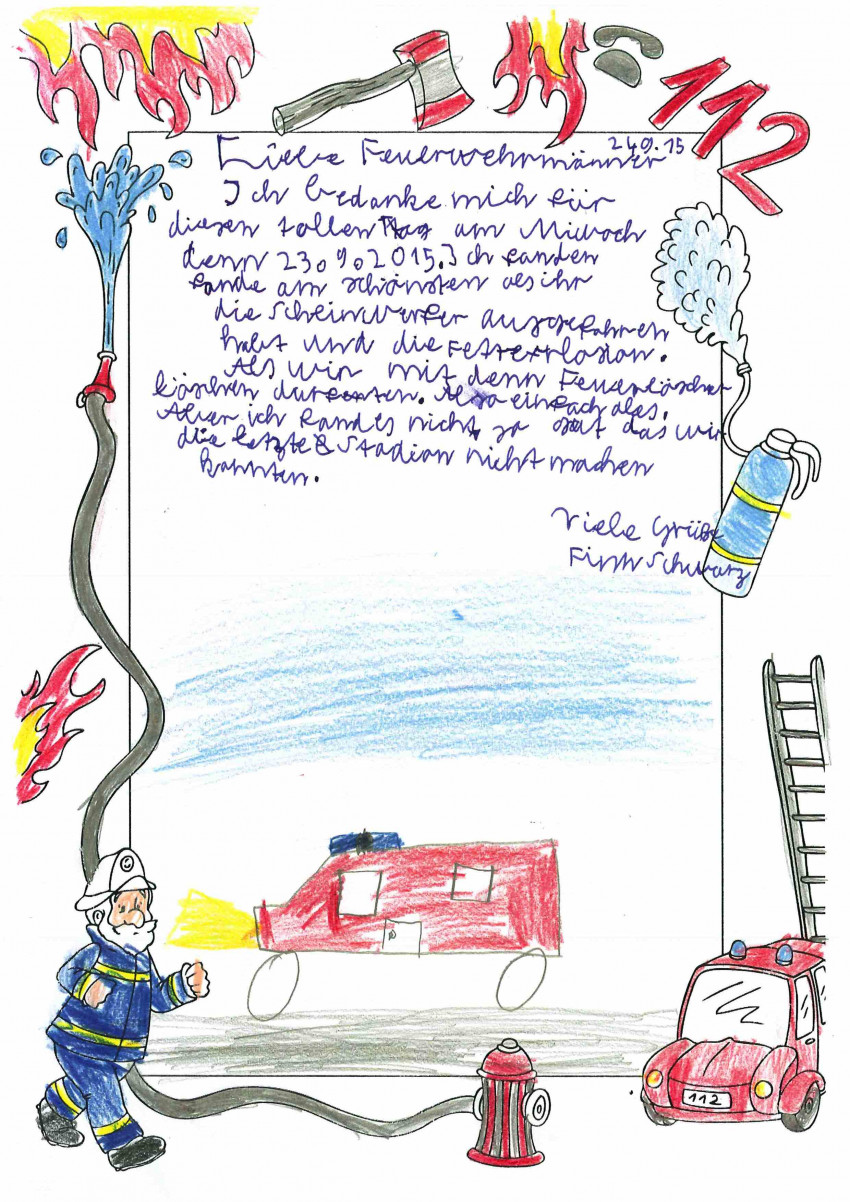 112
24.9.15
Liebe Feuerwehrmänner
Ich bedanke mich für
diesen tollen Tag am Miwoch
denn 23.9.2015. Ich fanden
fande am schönsten als ihr
die Scheinwerfer ausgefahren
habt und die Fettexplosion.
Als wir mit denn Feuerlöscher
löschen durften. Also einfach ales.
Aber ich fand es nicht so gut das wir
die letzte Stadion nicht machen
konnten.
Viele Grüße
Finn Schwarz
112